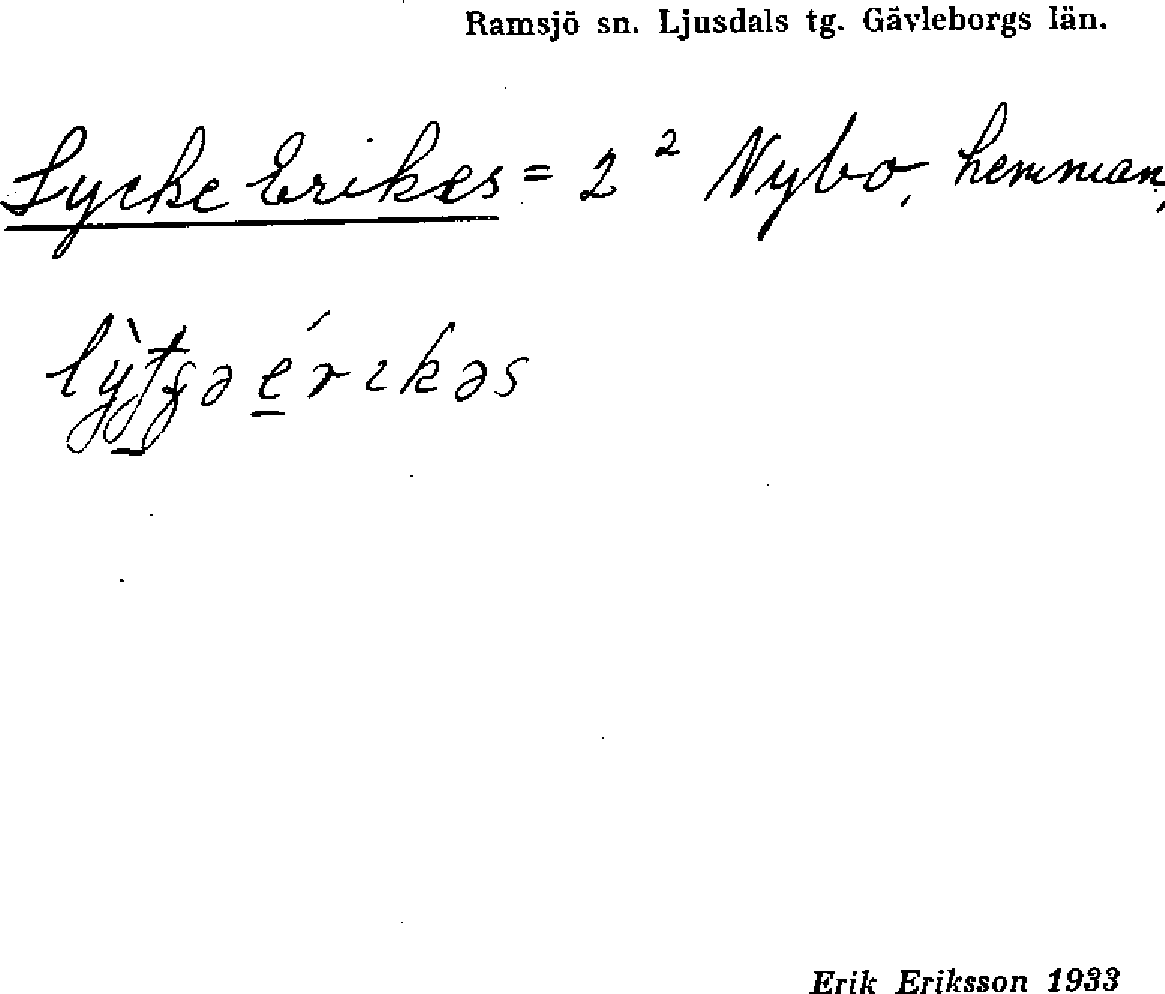 Ramsjö sn. Ljusdals tg. Gävleborgs län.
Lycke Erikes = 2² Nybo, hemman,
Erik Eriksson 1933